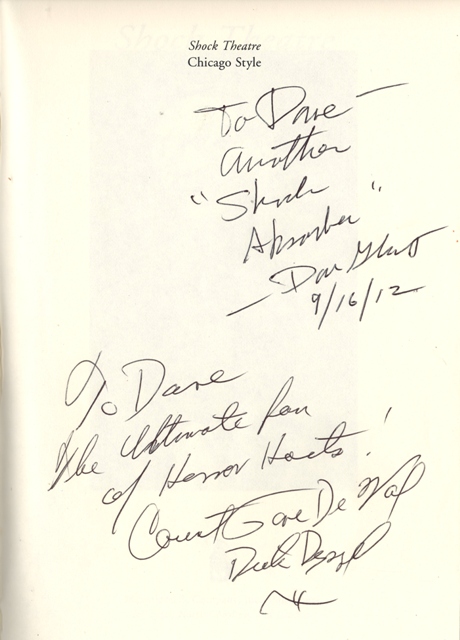 Shock Theatre
Chicago Style
To Dave —
Another
"Shock
Absorber"
— Don Glut
9/16/12
To Dave
The Ultimate fan
of Horror Hosts!
Count Gore De Vol
Dick Dyszel